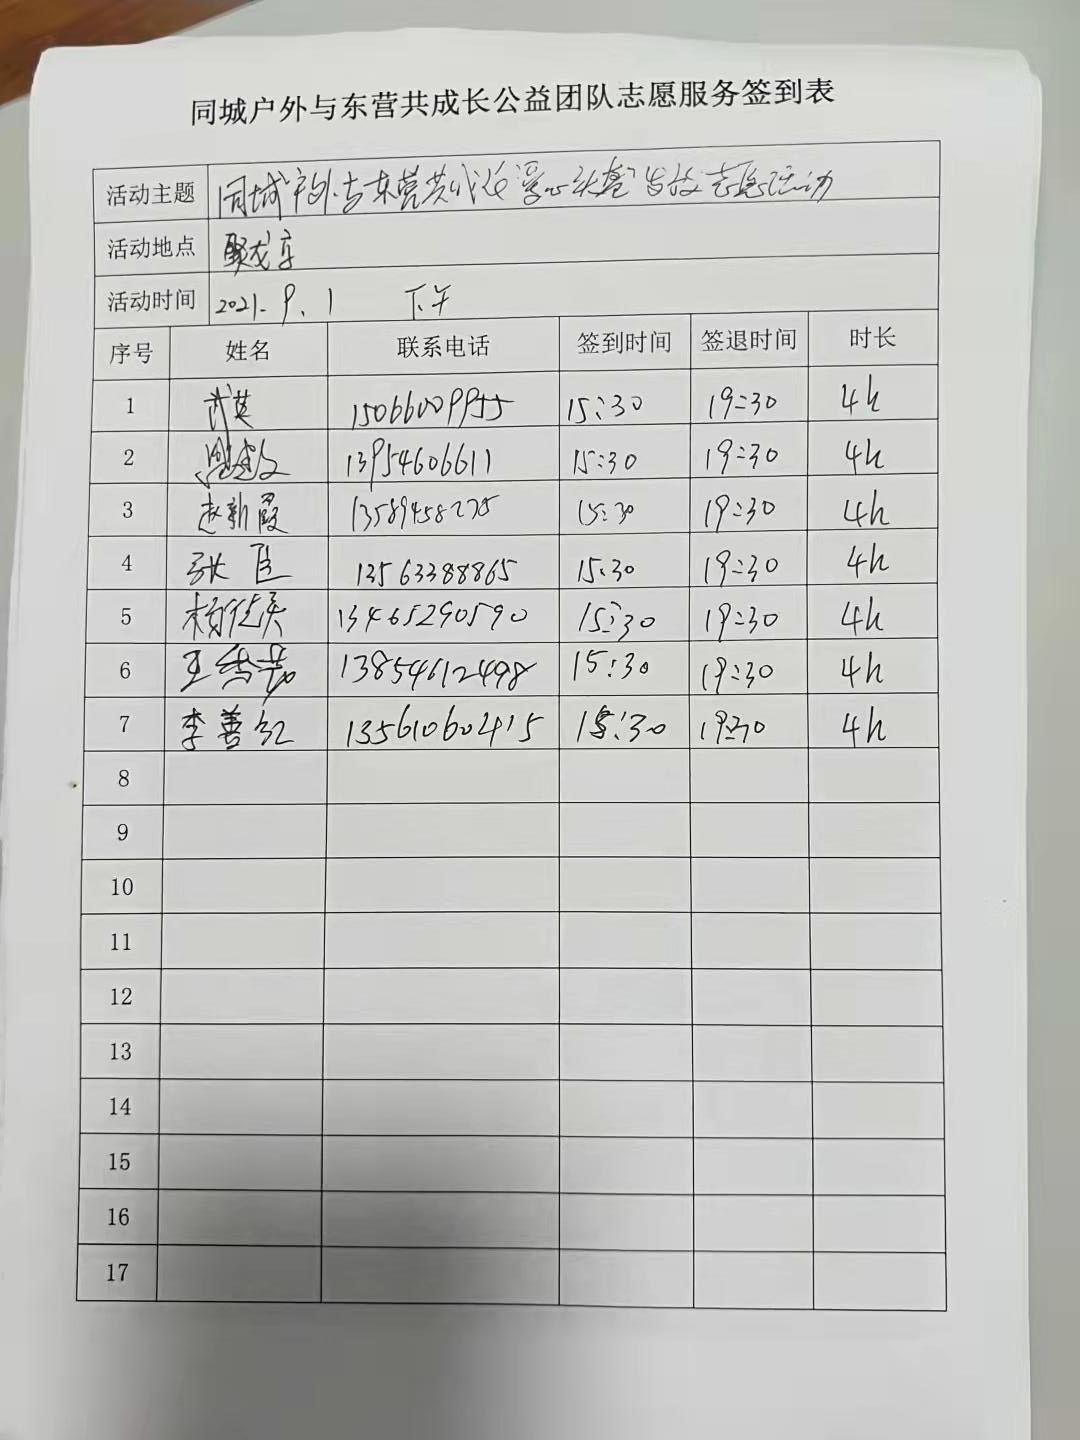 同城户外与东营共成长公益团队志愿服务签到表
活动主题 同城户外与东营共成长"爱心头盔"发放志愿活动
活动地点 聚龙亭
活动时间 2021.9.1 下午
序号 姓名 联系电话 签到时间 签退时间 时长
1 武英 15066009955 15:30 19:30 4h
2 13954606611 15:30 19:30 4h
3 赵新霞 13589458275 15:30 19:30 4h
4 张臣 13563388865 15:30 19:30 4h
5 杨 13465290590 15:30 19:30 4h
6 王秀芳 13854612498 15:30 19:30 4h
7 李善红 135610602415 15:30 19:30 4h
8
9
10
11
12
13
14
15
16
17